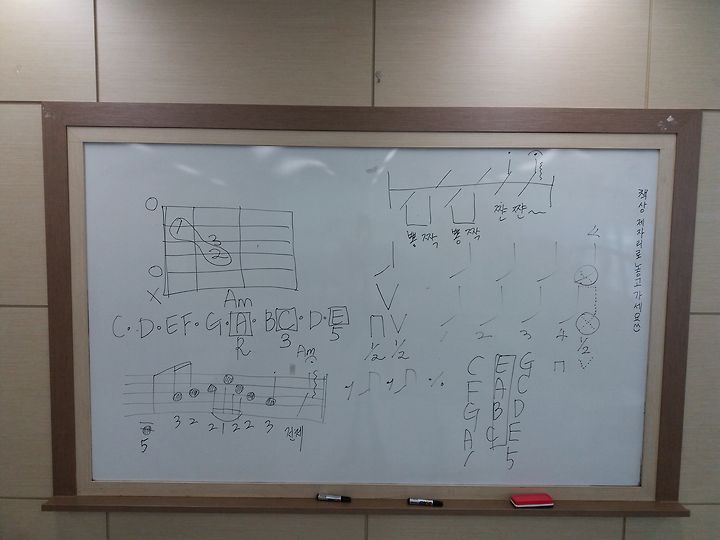 O
1
3
2
O
X
Am
C·D·EF·G·A·BC·D·E
R 3 5
Am
5 3 2 2 1 2 2 3 전체
뽕 짝 뽕 짝 짠 짠~
1/2 1/2
1 2 3 4 1/2
C E G
F A C
G B D
A C E
1 5
책상 제자리로 놓고 가세요